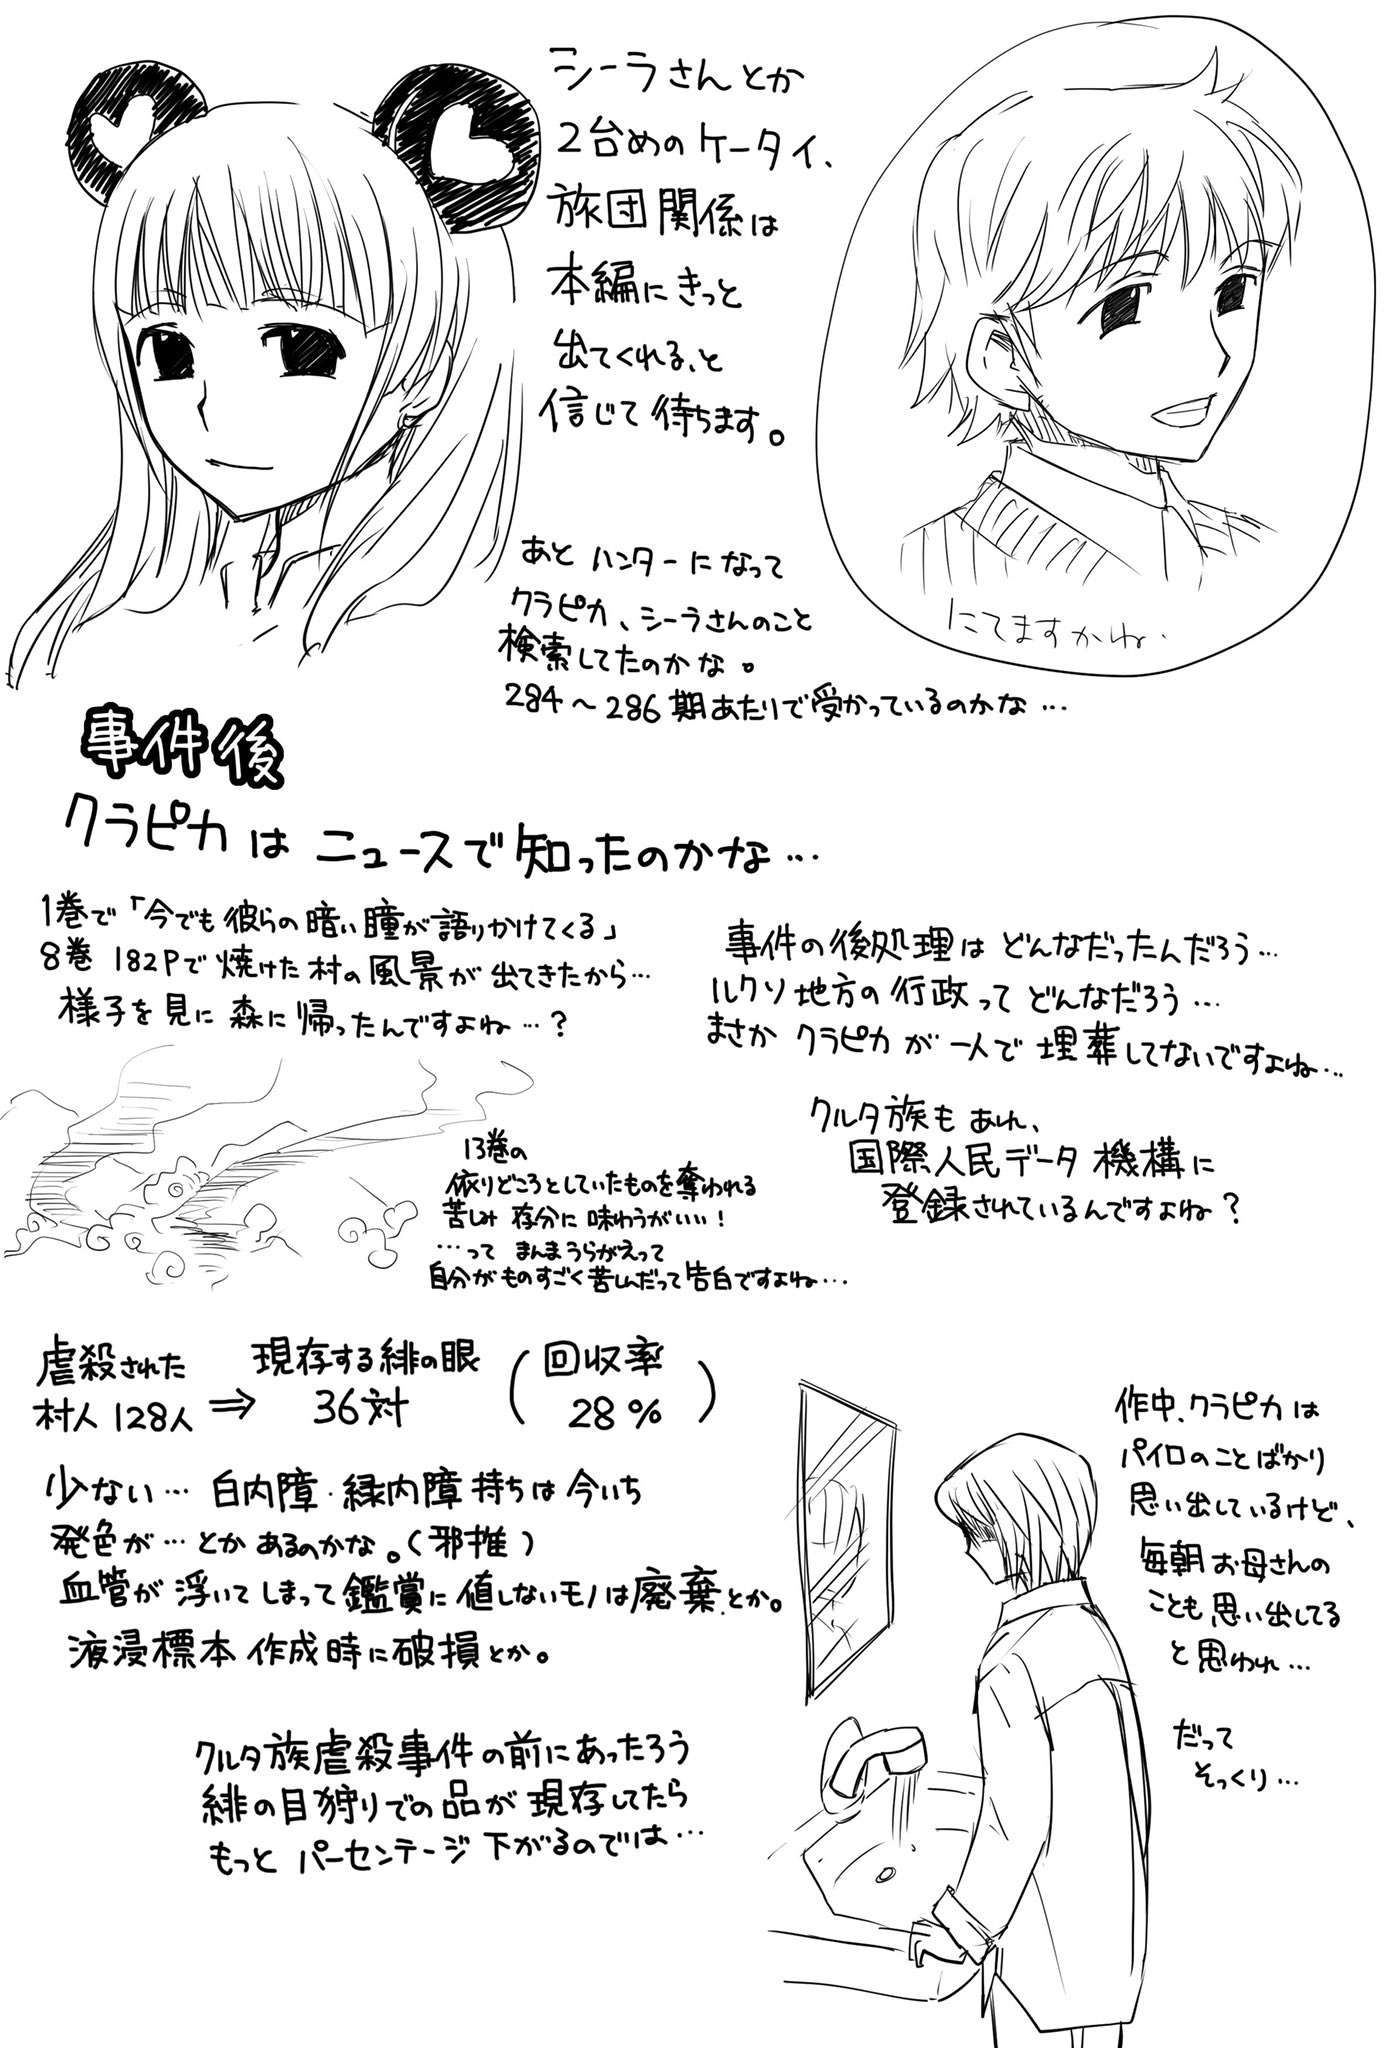 シーラさんとか
2台めのケータイ、
旅団関係は
本編にきっと
出てくれる、と
信じて待ちます。
にてますかね..
あと ハンターになって
クラピカ、シーラさんのこと
検索してたのかな。
284〜286期あたりで受かっているのかな…
事件後
クラピカは ニュースで知ったのかな…
1巻で「今でも彼らの暗い瞳が語りかけてくる」
8巻 182Pで焼けた村の風景が出てきたから…
様子を見に森に帰ったんですよね…?
事件の後処理は どんなだったんだろう…
ルクソ地方の行政って どんなだろう…
まさか クラピカが一人で埋葬してないですよね…
クルタ族も あれ、
国際人民データ機構に
登録されているんですよね?
13巻の
依りどころとしていたものを奪われる
苦しみ 存分に味わうがいい!
…って まんまうらがえって
自分がものすごく苦しんだって告白ですよね…
虐殺された
村人128人 ⇒ 現存する緋の眼
36対
(回収率
28%)
少ない… 白内障・緑内障持ちは今いち
発色が…とかあるのかな。(邪推)
血管が浮いてしまって鑑賞に値しないモノは廃棄とか。
液浸標本作成時に破損とか。
クルタ族虐殺事件の前にあったろう
緋の目狩りでの品が現存してたら
もっと パーセンテージ下がるのでは…
作中、クラピカは
パイロのことばかり
思い出しているけど、
毎朝お母さんの
ことも思い出してる
と思われ…
だって
そっくり…